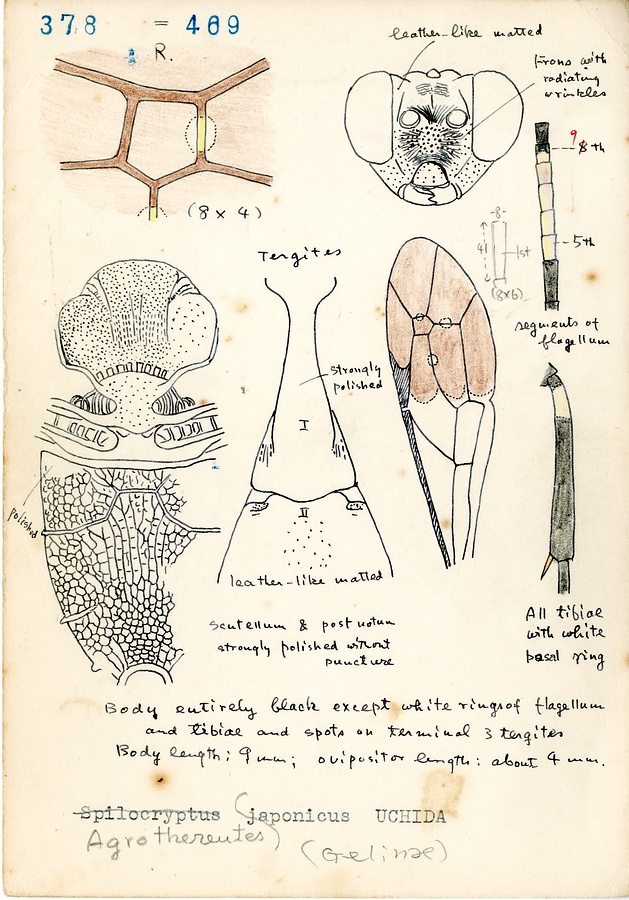 378 = 469
R.
(8 x 4)
leather-like matted
Frons with
radiating
wrinkles
9
8 th
5 th
segments of
flagellum
-8-
41
1st
(8x6)
Tergites
strongly
polished
I
II
leather-like matted
polished
scutellum & postnotum
strongly polished without
puncture
All tibiae
with white
basal ring
Body entirely black except white rings of flagellum
and tibiae and spots on terminal 3 tergites
Body length: 9 mm; ovipositor length: about 4 mm.
Spilocryptus (japonicus UCHIDA
Agrothereutes)
(Gelinae)